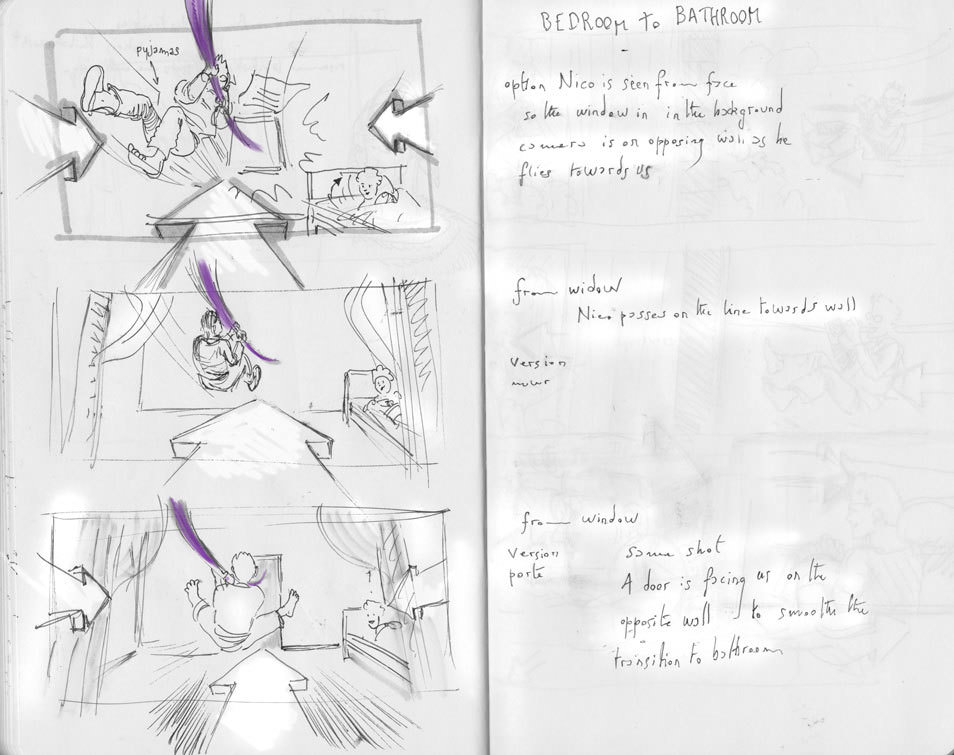 pyjamas
BEDROOM to BATHROOM
option Nico is seen from face
so the window in in the background
camera is on opposing wall as he
flies towards us
from widow
Nico passes on the line towards wall
version
murs
from window
version
porte
same shot
A door is facing us on the
opposite wall to smoothe the
transition to bathroom